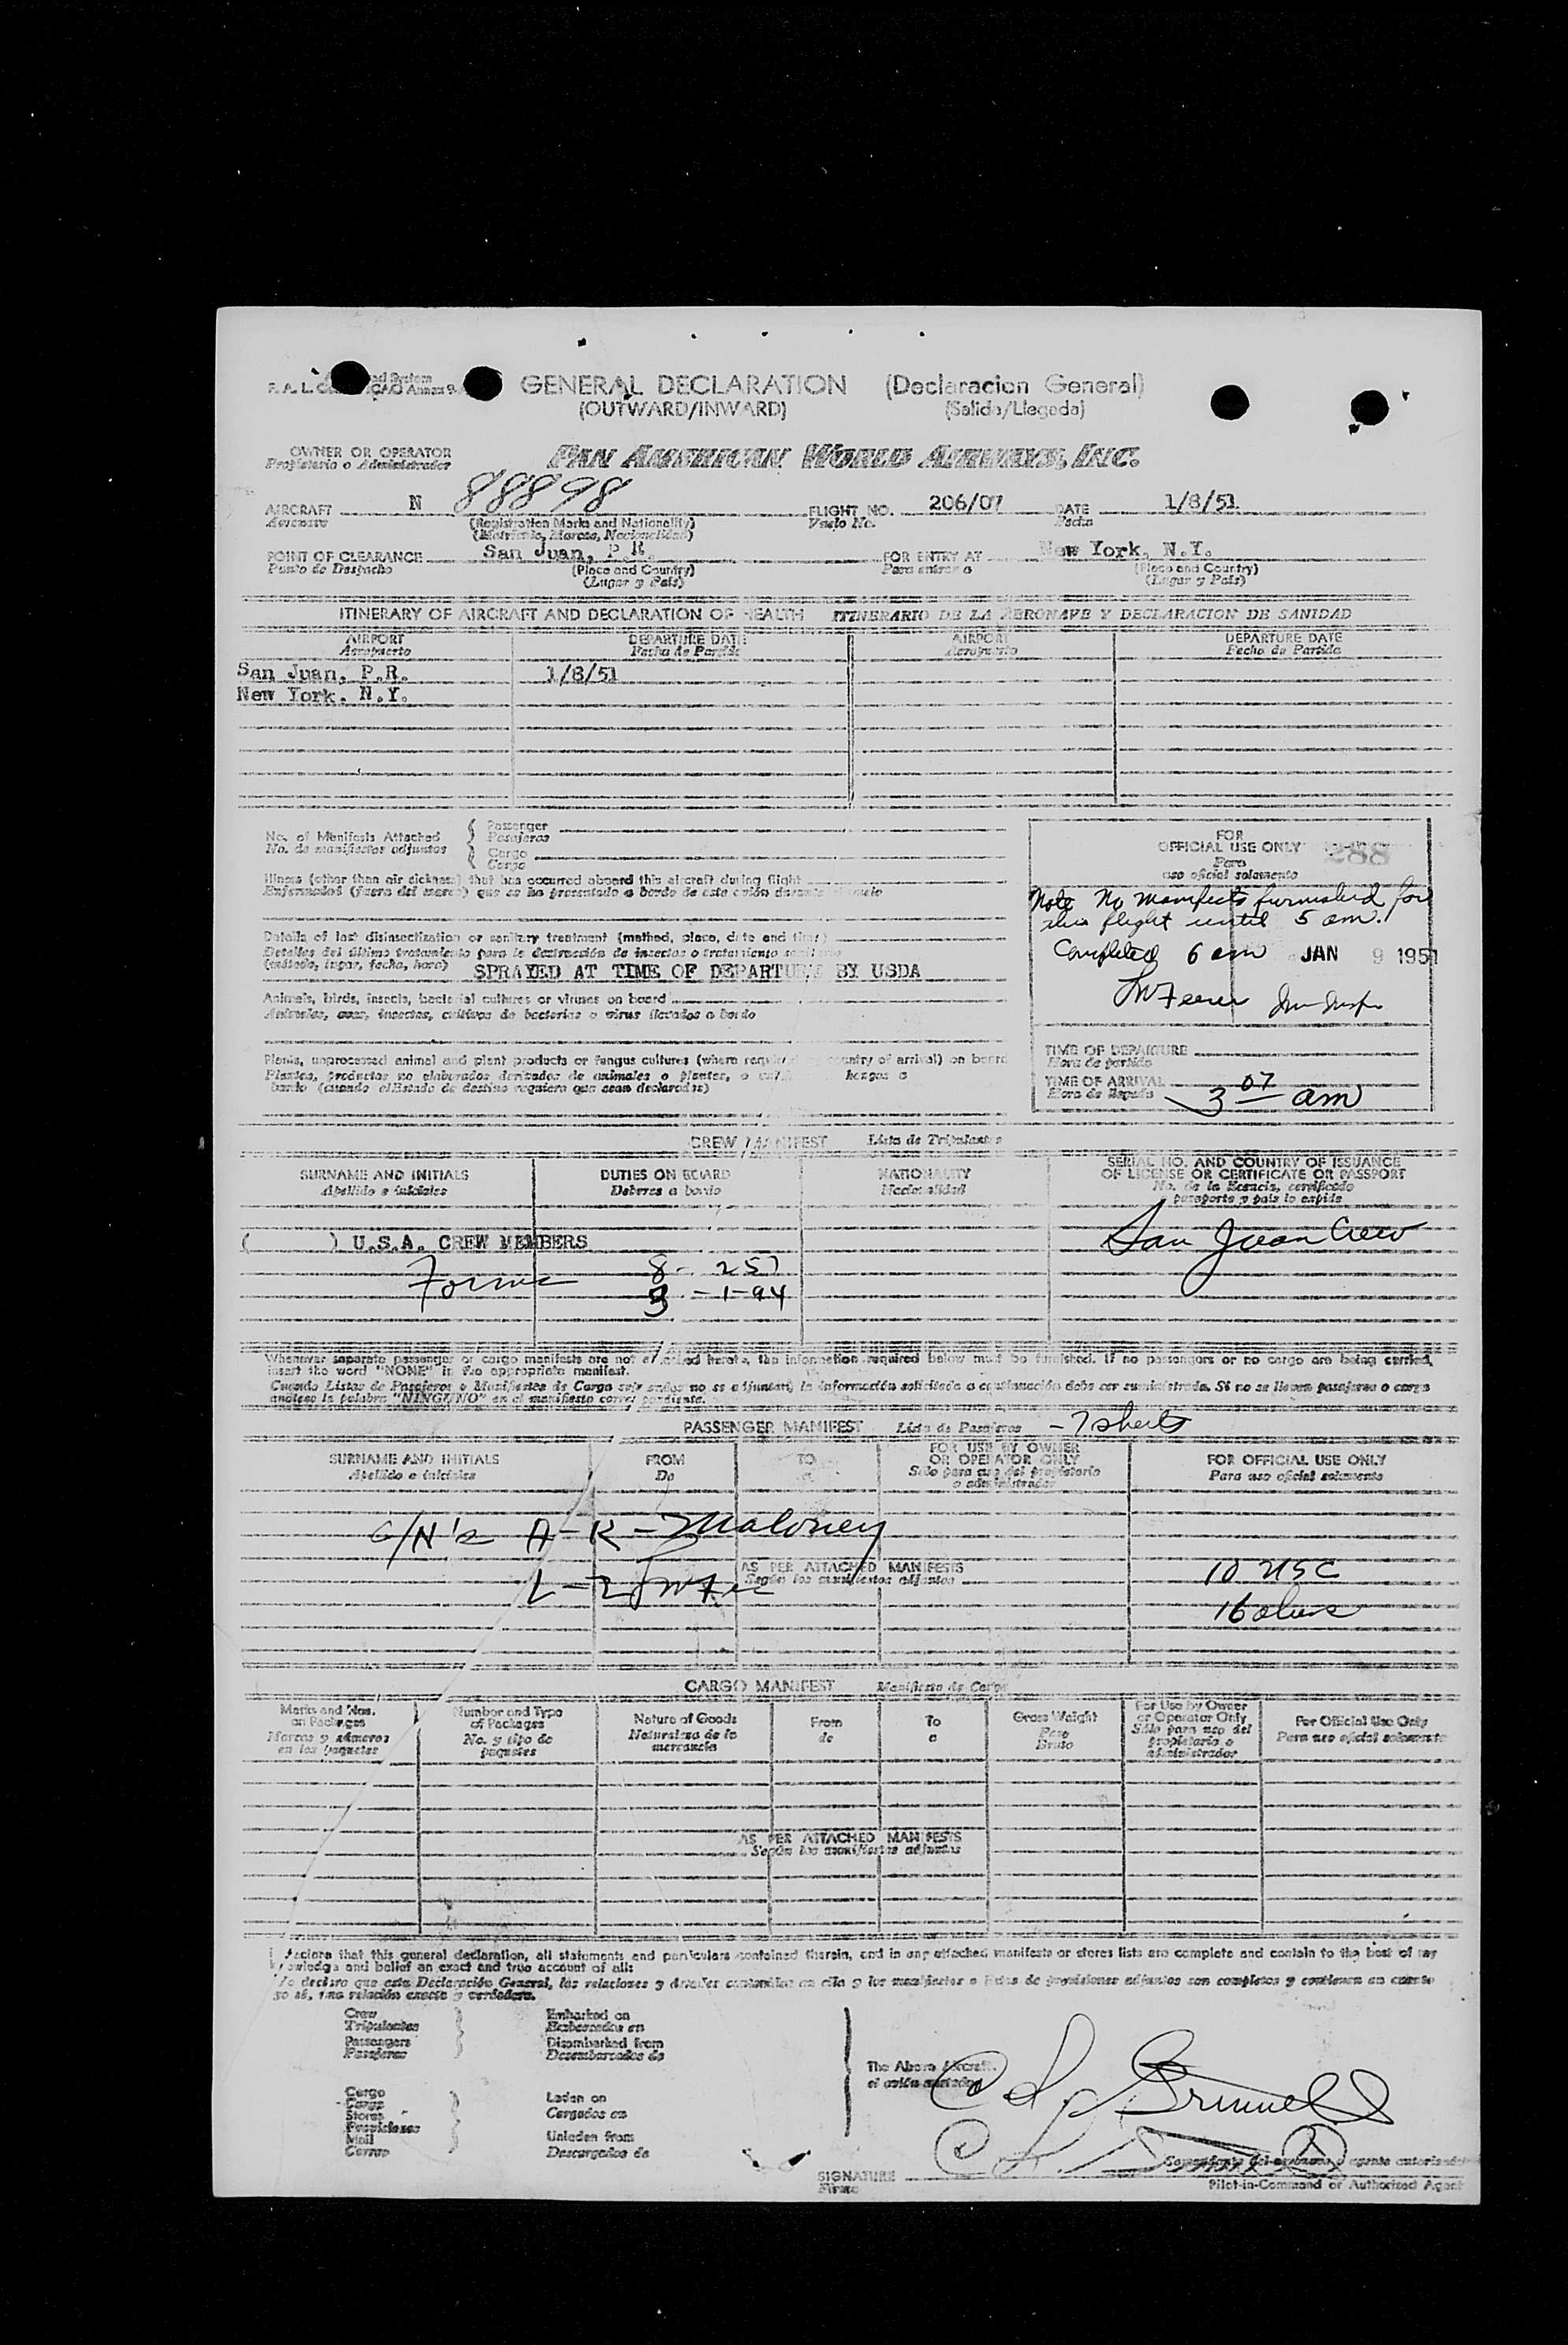 GENERAL DECLARATION (Declaracion General)
(OUTWARD/INWARD) (Salida/Llegada)
OWNER OR OPERATOR PAN AMERICAN WORLD AIRWAYS, INC.
Propietario o Administrador
AIRCRAFT N 88898 FLIGHT NO. 206/07 DATE 1/8/51
Aeronave (Registration Marks and Nationality) Vuelo No. Fecha
(Matricula, Marcas, Nacionalidad)
POINT OF CLEARANCE San Juan, P.R. FOR ENTRY AT New York, N.Y.
Punto de Despacho (Place and Country) Para entrar a (Place and Country)
(Lugar y Pais) (Lugar y Pais)
ITINERARY OF AIRCRAFT AND DECLARATION OF HEALTH ITINERARIO DE LA AERONAVE Y DECLARACION DE SANIDAD
AIRPORT DEPARTURE DATE AIRPORT DEPARTURE DATE
Aeropuerto Fecha de Partida Aeropuerto Fecha de Partida
San Juan, P.R. 1/8/51
New York, N.Y.
No. of Manifests Attached Passenger
No. de manifiestos adjuntos Pasajeros
Cargo
Cargo
Illness (other than air sickness) that has occurred aboard this aircraft during flight
Enfermedad (fuera del mareo) que se ha presentado a bordo de este avión durante el vuelo
Details of last disinsectization or sanitary treatment (method, place, date and time)
Detalles del último tratamiento para la destrucción de insectos o tratamiento sanitario
(método, lugar, fecha, hora) SPRAYED AT TIME OF DEPARTURE BY USDA
Animals, birds, insects, bacterial cultures or viruses on board
Animales, aves, insectos, cultivos de bacterias o virus llevados a bordo
Plants, unprocessed animal and plant products or fungus cultures (where required country of arrival) on board
Plantas, productos no elaborados derivados de animales o plantas, o hongos a
bordo (cuando el Estado de destino requiera que sean declarados)
FOR
OFFICIAL USE ONLY 288
Para
uso oficial solamente
Note No Manifests furnished for
this flight until 5 am.
Completed 6 am JAN 9 1951
TIME OF DEPARTURE
Hora de partida
TIME OF ARRIVAL 3 07 am
Hora de llegada
CREW MANIFEST Lista de Tripulantes
SURNAME AND INITIALS DUTIES ON BOARD NATIONALITY SERIAL NO. AND COUNTRY OF ISSUANCE
OF LICENSE OR CERTIFICATE OR PASSPORT
Apellido e iniciales Deberes a bordo Nacionalidad No. de la licencia, certificado
o pasaporte y pais lo expide
San Juan Crew
( ) U.S.A. CREW MEMBERS
Forms 8- 257
3 - 1-94
Whenever separate passenger or cargo manifests are not attached hereto, the information required below must be furnished. If no passengers or no cargo are being carried,
insert the word "NONE" in the appropriate manifest.
Cuando Listas de Pasajeros o Manifiestos de Carga separados no se adjuntan, la información solicitada a continuación debe ser suministrada. Si no se llevan pasajeros o carga
anótese la palabra "NINGUNO" en el manifiesto correspondiente.
PASSENGER MANIFEST Lista de Pasajeros - 7 sheets
SURNAME AND INITIALS FROM TO FOR USE BY OWNER
OR OPERATOR ONLY FOR OFFICIAL USE ONLY
Apellido e iniciales De a Sólo para uso del propietario
o administrador Para uso oficial solamente
A-K - Maloney
AS PER ATTACHED MANIFESTS
Según los manifiestos adjuntos
L-Z
10 USC
16 aliens
CARGO MANIFEST Manifiesto de Carga
Marks and Nos.
on Packages Number and Type
of Packages Nature of Goods From To Gross Weight For Use by Owner
or Operator Only For Official Use Only
Marcas y números
en los paquetes No. y tipo de
paquetes Naturaleza de la
mercancía de a Peso
Bruto Sólo para uso del
propietario o
administrador Para uso oficial solamente
AS PER ATTACHED MANIFESTS
Según los manifiestos adjuntos
I declare that this general declaration, all statements and particulars contained therein, and in any attached manifests or stores lists are complete and contain to the best of my
knowledge and belief an exact and true account of all:
Yo declaro que esta Declaración General, las relaciones y detalles contenidos en ella y los manifiestos o listas de provisiones adjuntos son completos y contienen en cuanto
yo sé, una relación exacta y verdadera.
Crew Embarked on
Tripulantes Embarcados en
Passengers Disembarked from
Pasajeros Desembarcados de
The Above Aircraft.
el avión mencionado
Cargo Laden on
Carga Cargados en
Stores
Provisiones
Mail Unladen from
Correo Descargados de
SIGNATURE
Firma
Pilot-in-Command or Authorized Agent